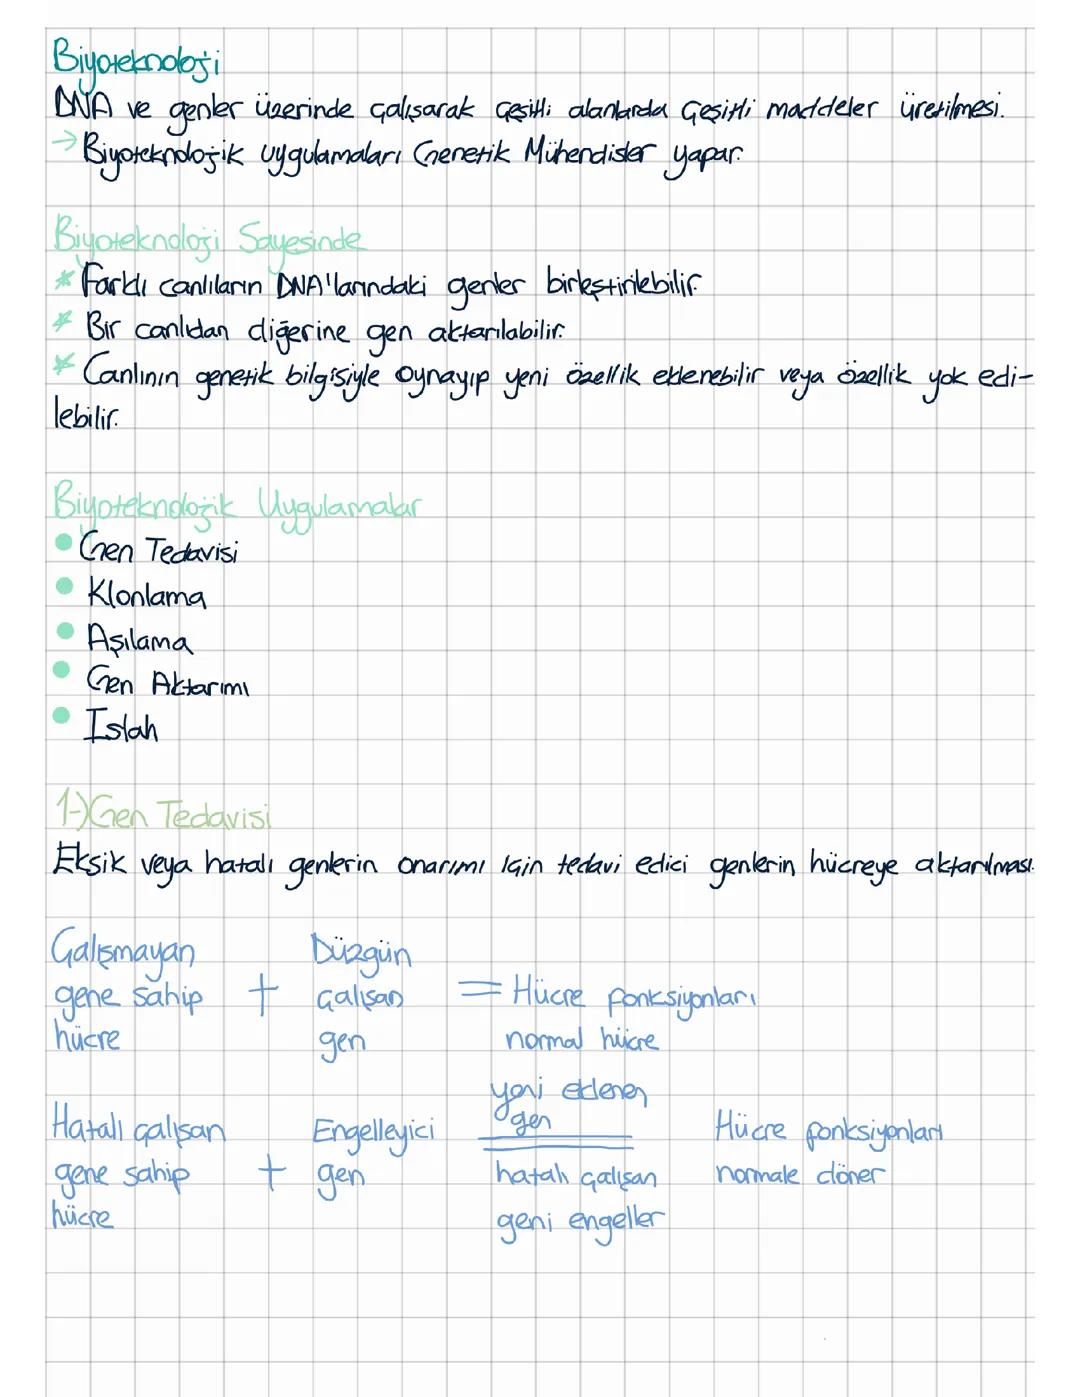 Biyoteknoloji
DNA ve genler üzerinde çalışarak çeşitli alanlarda çeşitli maddeler üretilmesi.
→ Biyoteknolojik uygulamaları Genetik Mühendisler yapar.
Biyoteknoloji Sayesinde
* Farklı canlıların DNA'larındaki genler birleştirilebilir.
* Bir canlıdan diğerine gen aktarılabilir.
* Canlının genetik bilgisiyle oynayıp yeni özellik eklenebilir veya özellik yok edi-
lebilir.
Biyoteknolojik Uygulamalar
• Gen Tedavisi
• Klonlama
• Aşılama
• Gen Aktarımı
• Islah
1-) Gen Tedavisi
Eksik veya hatalı genlerin onarımı için tedavi edici genlerin hücreye aktarılması.
Çalışmayan gene sahip hücre + Düzgün çalışan gen = Hücre fonksiyonları normal hücre
Hatalı çalışan gene sahip hücre + Engelleyici gen
yeni eklenen gen
hatalı çalışan geni engeller
Hücre fonksiyonları normale döner